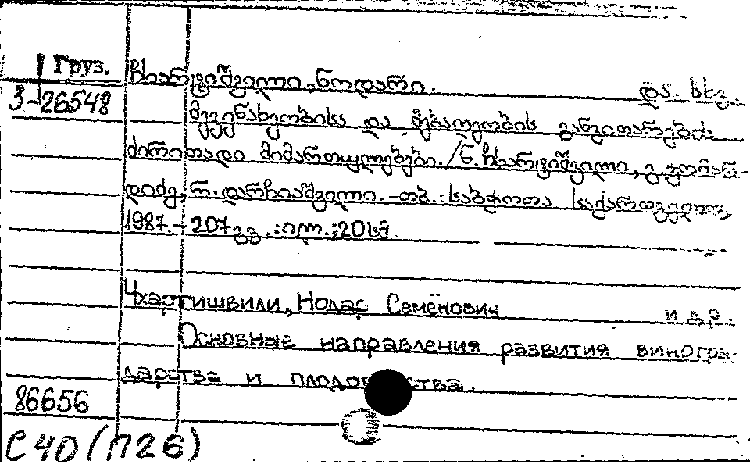 Груз. ჩხარტიშვილი, ნოდარი. და სხვ.
3-26548 მევენახეობისა და მეხილეობის განვითარების
ძირითადი მიმართულებები. /ნ. ჩხარტიშვილი,
დიძე, რ. დარჩიაშვილი. -თბ.: საბჭოთა საქართველო,
1987.- 207 გვ. :ილ.; 20სმ.
Чхартишвили, Нодар Семёнович и др.
Основные направления развития виногра-
дарства и
86656
С40(П26)